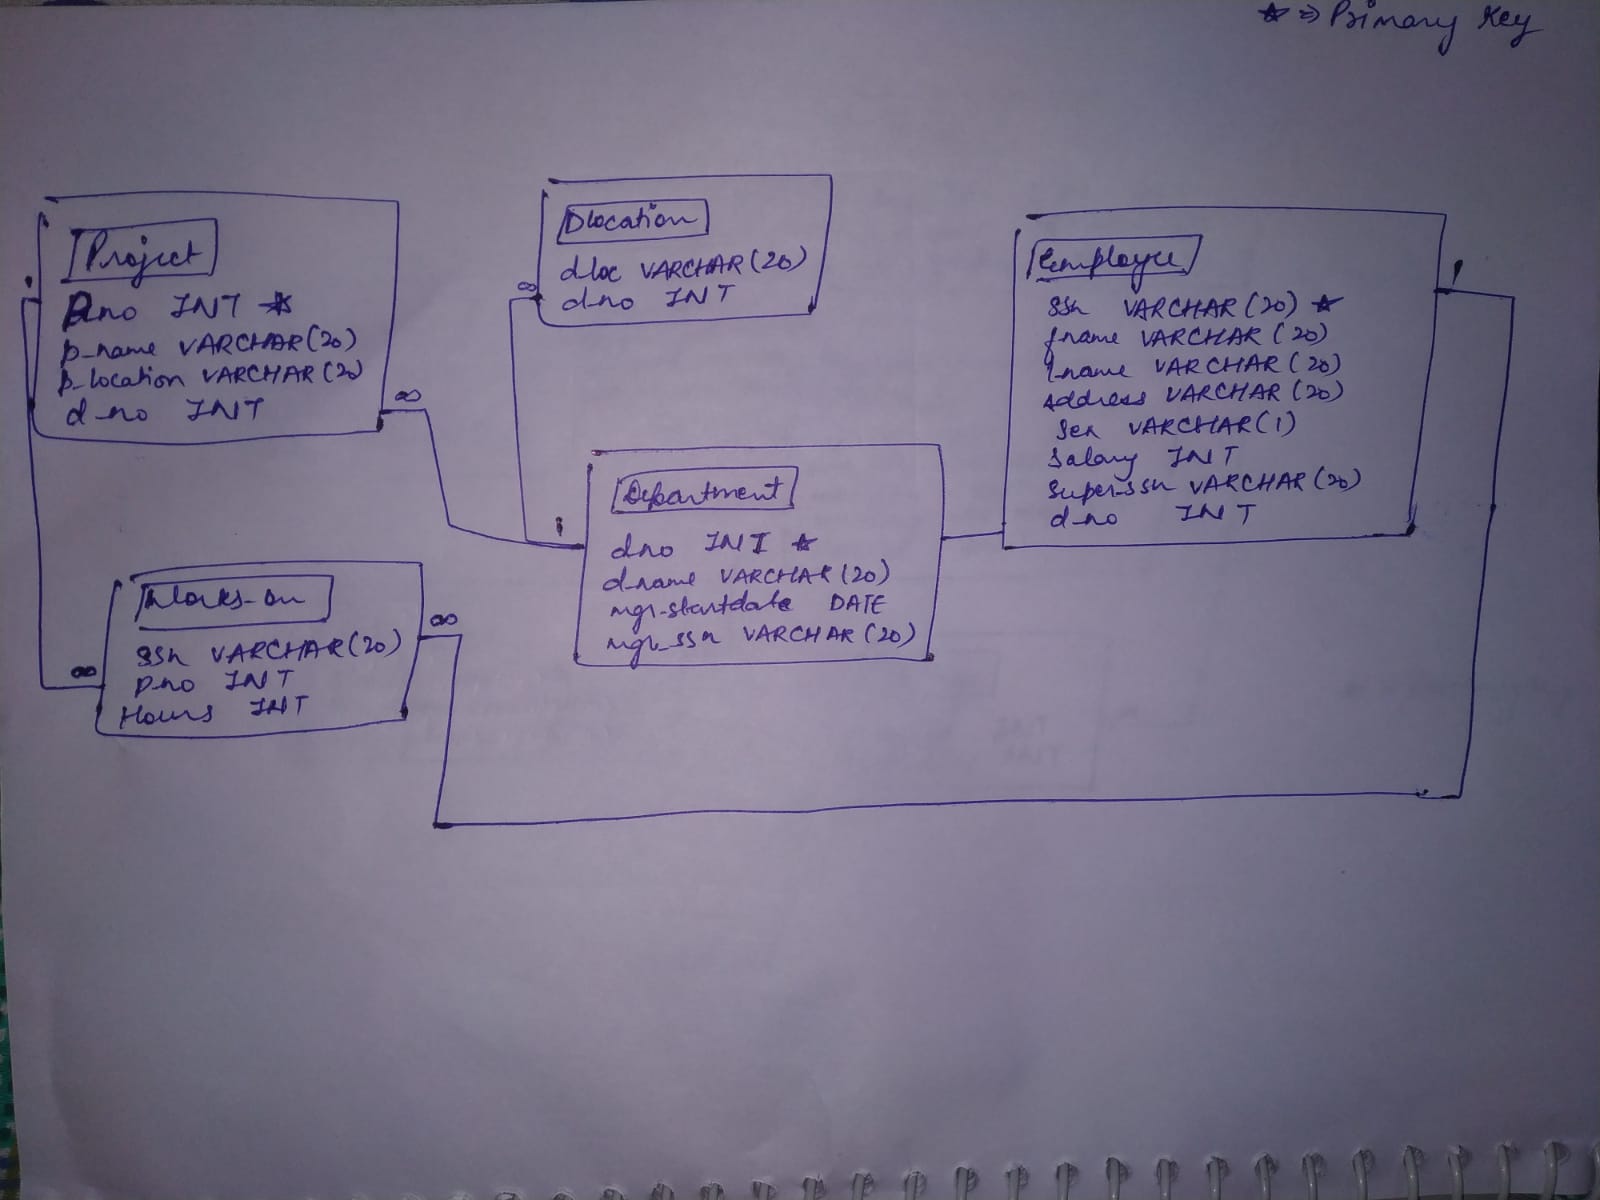 ★ ⇒ Primary Key
Project
P_no INT ★
p_name VARCHAR(20)
p_location VARCHAR(20)
d_no INT
∞
1
Dlocation
d_loc VARCHAR(20)
d_no INT
∞
Employee
SSn VARCHAR(20) ★
f_name VARCHAR(20)
l_name VARCHAR(20)
Address VARCHAR(20)
Sex VARCHAR(1)
Salary INT
Super_ssn VARCHAR(20)
d_no INT
1
Department
d_no INT ★
d_name VARCHAR(20)
mgr_startdate DATE
mgr_ssn VARCHAR(20)
1
Works_on
SSn VARCHAR(20)
P_no INT
Hours INT
∞
∞